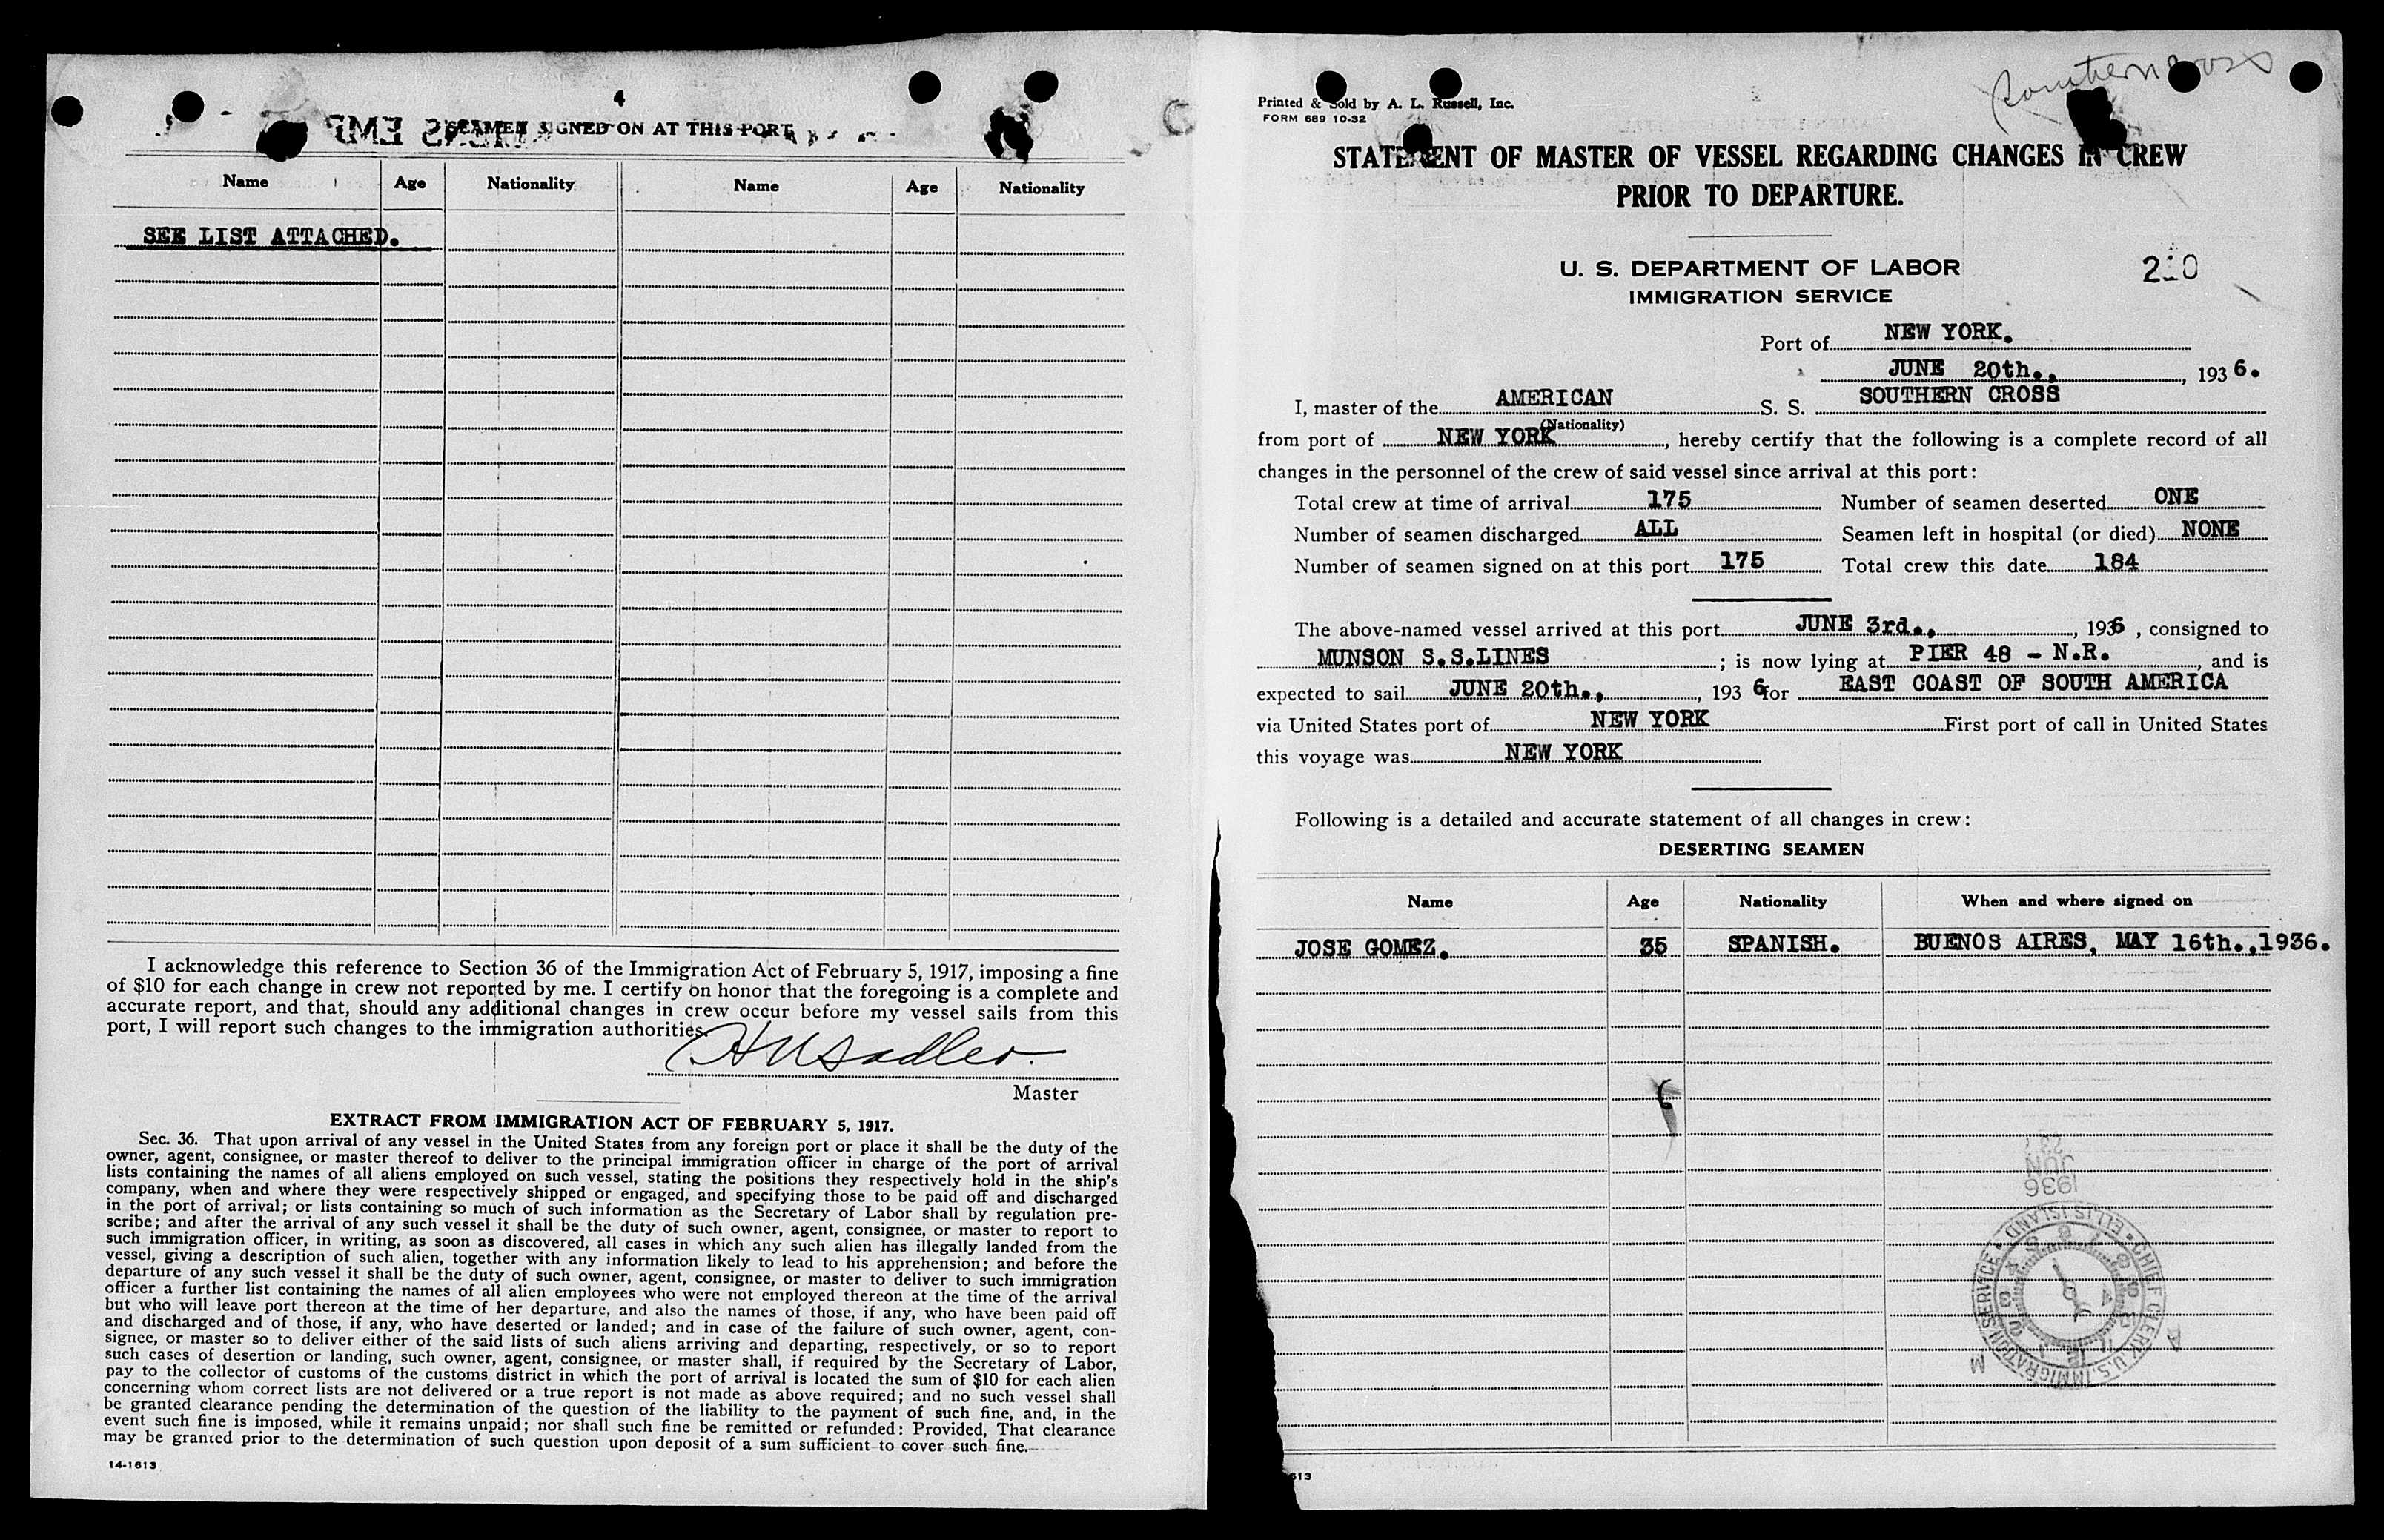 4
SEAMEN SIGNED ON AT THIS PORT
Name Age Nationality Name Age Nationality
SEE LIST ATTACHED.
I acknowledge this reference to Section 36 of the Immigration Act of February 5, 1917, imposing a fine
of $10 for each change in crew not reported by me. I certify on honor that the foregoing is a complete and
accurate report, and that, should any additional changes in crew occur before my vessel sails from this
port, I will report such changes to the immigration authorities.
H N Sadler.
Master
EXTRACT FROM IMMIGRATION ACT OF FEBRUARY 5, 1917.
Sec. 36. That upon arrival of any vessel in the United States from any foreign port or place it shall be the duty of the
owner, agent, consignee, or master thereof to deliver to the principal immigration officer in charge of the port of arrival
lists containing the names of all aliens employed on such vessel, stating the positions they respectively hold in the ship's
company, when and where they were respectively shipped or engaged, and specifying those to be paid off and discharged
in the port of arrival; or lists containing so much of such information as the Secretary of Labor shall by regulation pre-
scribe; and after the arrival of any such vessel it shall be the duty of such owner, agent, consignee, or master to report to
such immigration officer, in writing, as soon as discovered, all cases in which any such alien has illegally landed from the
vessel, giving a description of such alien, together with any information likely to lead to his apprehension; and before the
departure of any such vessel it shall be the duty of such owner, agent, consignee, or master to deliver to such immigration
officer a further list containing the names of all alien employees who were not employed thereon at the time of the arrival
but who will leave port thereon at the time of her departure, and also the names of those, if any, who have been paid off
and discharged and of those, if any, who have deserted or landed; and in case of the failure of such owner, agent, con-
signee, or master so to deliver either of the said lists of such aliens arriving and departing, respectively, or so to report
such cases of desertion or landing, such owner, agent, consignee, or master shall, if required by the Secretary of Labor,
pay to the collector of customs of the customs district in which the port of arrival is located the sum of $10 for each alien
concerning whom correct lists are not delivered or a true report is not made as above required; and no such vessel shall
be granted clearance pending the determination of the question of the liability to the payment of such fine, and, in the
event such fine is imposed, while it remains unpaid; nor shall such fine be remitted or refunded: Provided, That clearance
may be granted prior to the determination of such question upon deposit of a sum sufficient to cover such fine.
14-1613
Southern Cross
Printed & Sold by A. L. Russell, Inc.
FORM 689 10-32
STATEMENT OF MASTER OF VESSEL REGARDING CHANGES IN CREW
PRIOR TO DEPARTURE.
U. S. DEPARTMENT OF LABOR
IMMIGRATION SERVICE
210
Port of NEW YORK.
JUNE 20th., , 1936.
I, master of the AMERICAN S. S. SOUTHERN CROSS
(Nationality)
from port of NEW YORK, hereby certify that the following is a complete record of all
changes in the personnel of the crew of said vessel since arrival at this port:
Total crew at time of arrival 175 Number of seamen deserted ONE
Number of seamen discharged ALL Seamen left in hospital (or died) NONE
Number of seamen signed on at this port 175 Total crew this date 184
The above-named vessel arrived at this port JUNE 3rd., , 1936 , consigned to
MUNSON S.S.LINES ; is now lying at PIER 48 - N.R. , and is
expected to sail JUNE 20th., , 193 6 for EAST COAST OF SOUTH AMERICA
via United States port of NEW YORK First port of call in United States
this voyage was NEW YORK
Following is a detailed and accurate statement of all changes in crew:
DESERTING SEAMEN
Name Age Nationality When and where signed on
JOSE GOMEZ. 35 SPANISH. BUENOS AIRES, MAY 16th.,1936.
JUN
1936
CHIEF CLERK U.S. IMMIGRATION SERVICE • ELLIS ISLAND •
A M
613